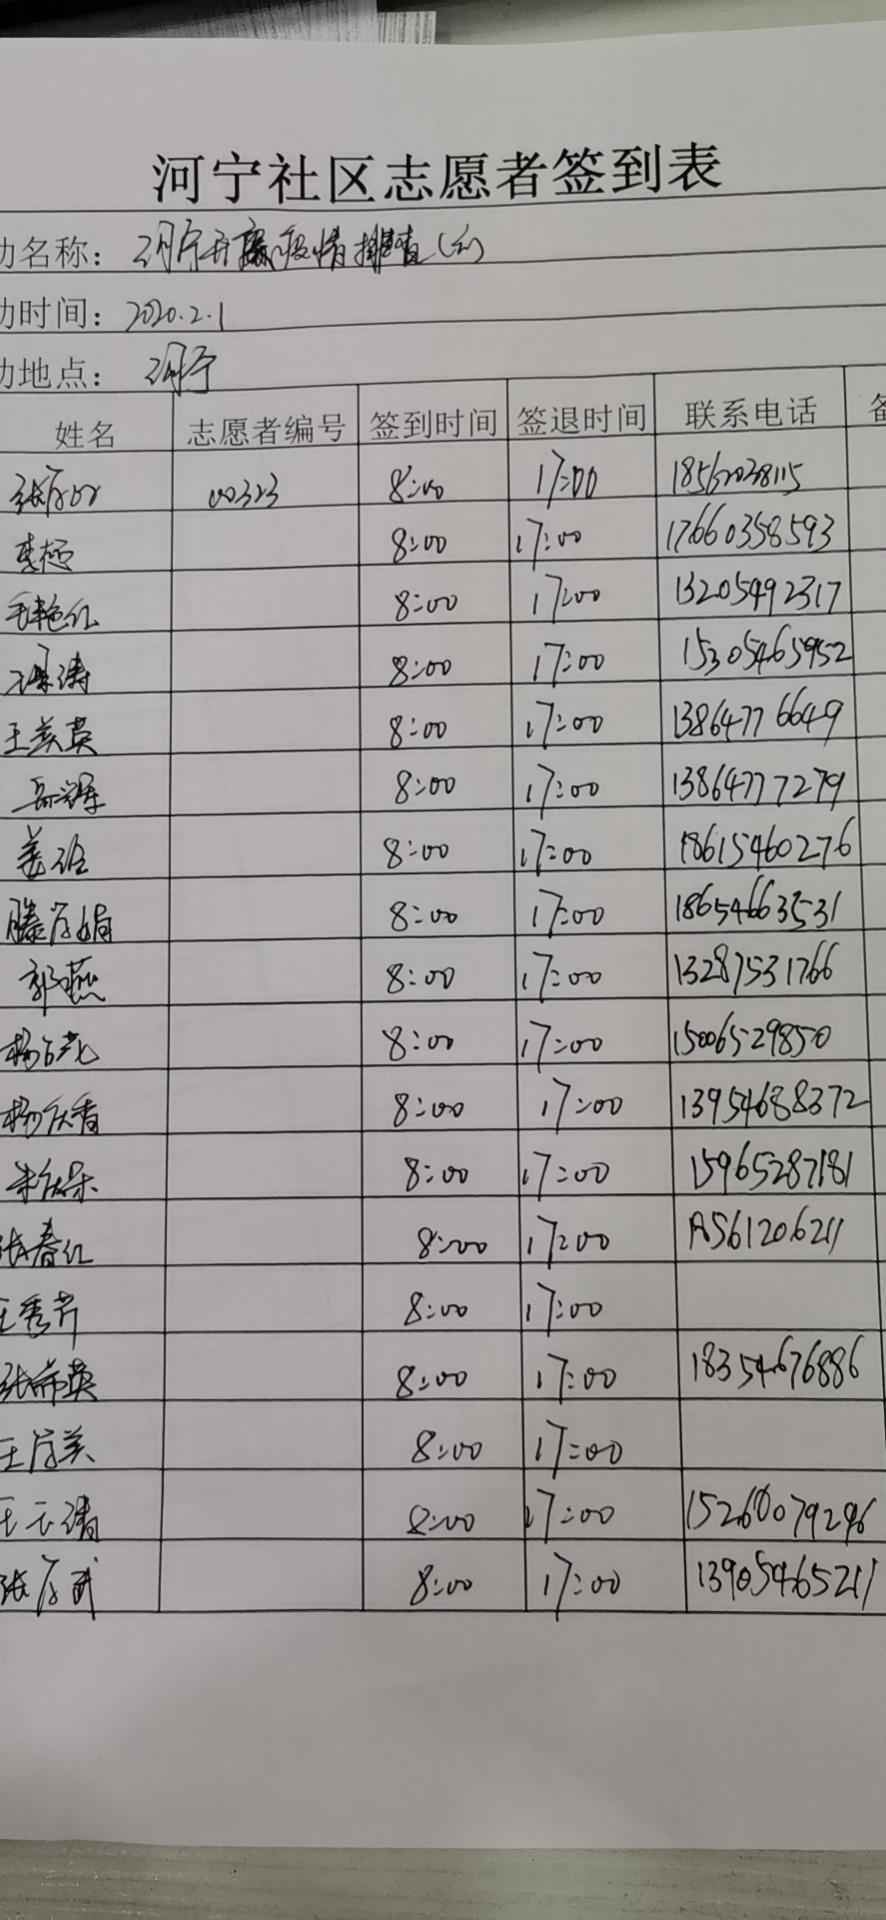 河宁社区志愿者签到表
动名称: 河宁开展疫情排查(六)
动时间: 2020.2.1
动地点: 河宁
姓名 志愿者编号 签到时间 签退时间 联系电话 备
00323 8:00 17:00 18562038115
8:00 17:00 17660358593
毛艳红 8:00 17:00 13205492317
8:00 17:00 15305465952
王美英 8:00 17:00 13864776649
8:00 17:00 13864777279
姜 8:00 17:00 18615460276
滕 娟 8:00 17:00 18654663531
郭燕 8:00 17:00 13287531766
杨 8:00 17:00 15006529850
杨 香 8:00 17:00 13954688372
8:00 17:00 15965287181
张春红 8:00 17:00 1561206211
王秀芹 8:00 17:00
张 英 8:00 17:00 18354676886
王 美 8:00 17:00
王 清 8:00 17:00 15260079296
张 武 8:00 17:00 13905465211